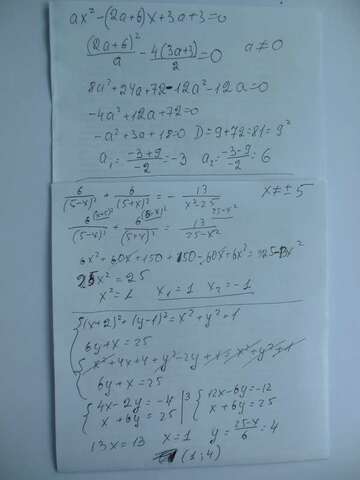 ax² - (2a+6)x + 3a+3 = 0
(2a+6)²/a - 4(3a+3)/2 = 0 a ≠ 0
8a² + 24a + 72 - 12a² - 12a = 0
-4a² + 12a + 72 = 0
-a² + 3a + 18 = 0 D = 9 + 72 = 81 = 9²
a₁ = (-3+9)/-2 = -3 a₂ = (-3-9)/-2 = 6
6/(5-x)² + 6/(5+x)² = - 13/(x² 25) x ≠ ± 5
6/(5-x)² + 6/(5+x)² = 13/(25-x²)
6x² + 60x + 150 + 150 - 60x + 6x² = 325 - 13x²
25x² = 25
x² = 1 x₁ = 1 x₂ = -1
{ (x+2)² + (y-1)² = x² + y² + 1
6y + x = 25
{ x² + 4x + 4 + y² - 2y + 1 = x² + y² + 1
6y + x = 25
{ 4x - 2y = -4 |3 { 12x - 6y = -12
x + 6y = 25 x + 6y = 25
13x = 13 x = 1 y = (25-x)/6 = 4
(1; 4)